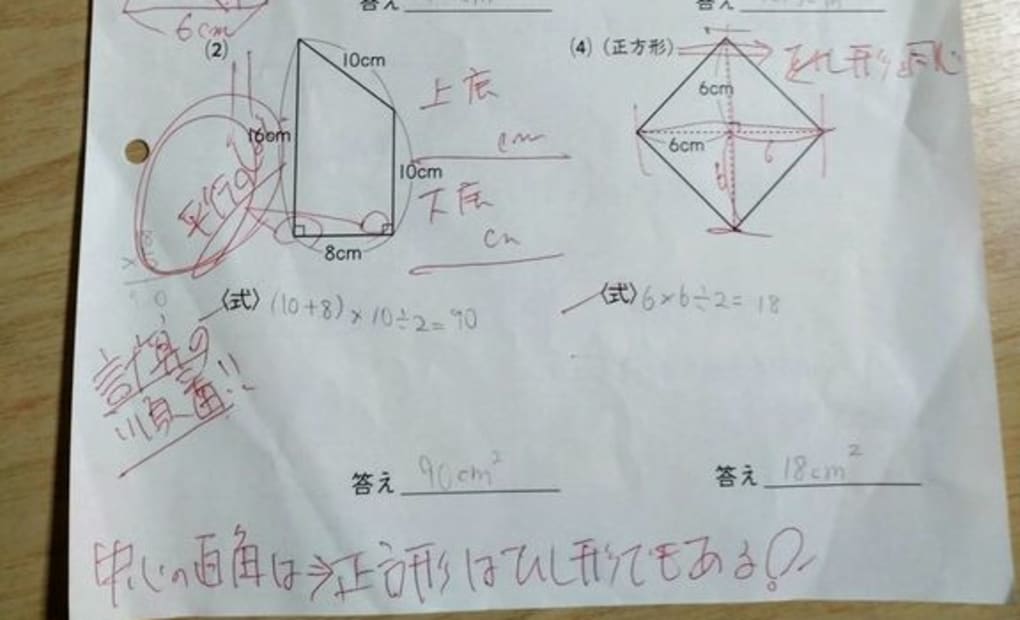 答え
答え
6cm
(2)
10cm
16cm
10cm
8cm
上底
cm
下底
cm
(4)(正方形)
ひし形と同じ
6cm
6cm
6
6
〈式〉(10+8)×10÷2=90
〈式〉6×6÷2=18
計算の
順番!!
答え 90cm²
答え 18cm²
中心の直角は⇒正方形はひし形でもある